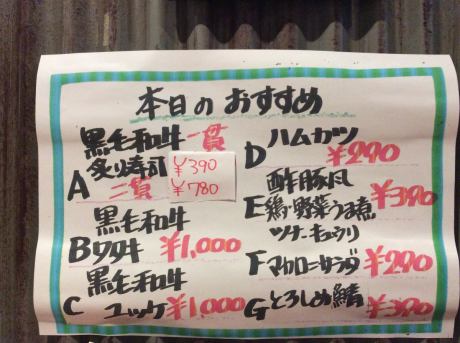 本日のおすすめ
黒毛和牛 一貫
A 炙り寿司 ¥390
二貫 ¥780
黒毛和牛
B ワタ牛 ¥1,000
黒毛和牛
C ユッケ ¥1,000
D ハムカツ
¥290
酢豚風
E 鶏・野菜うま煮 ¥380
ツナ・キュウリ
F マカロニサラダ ¥290
G とろしめ鯖